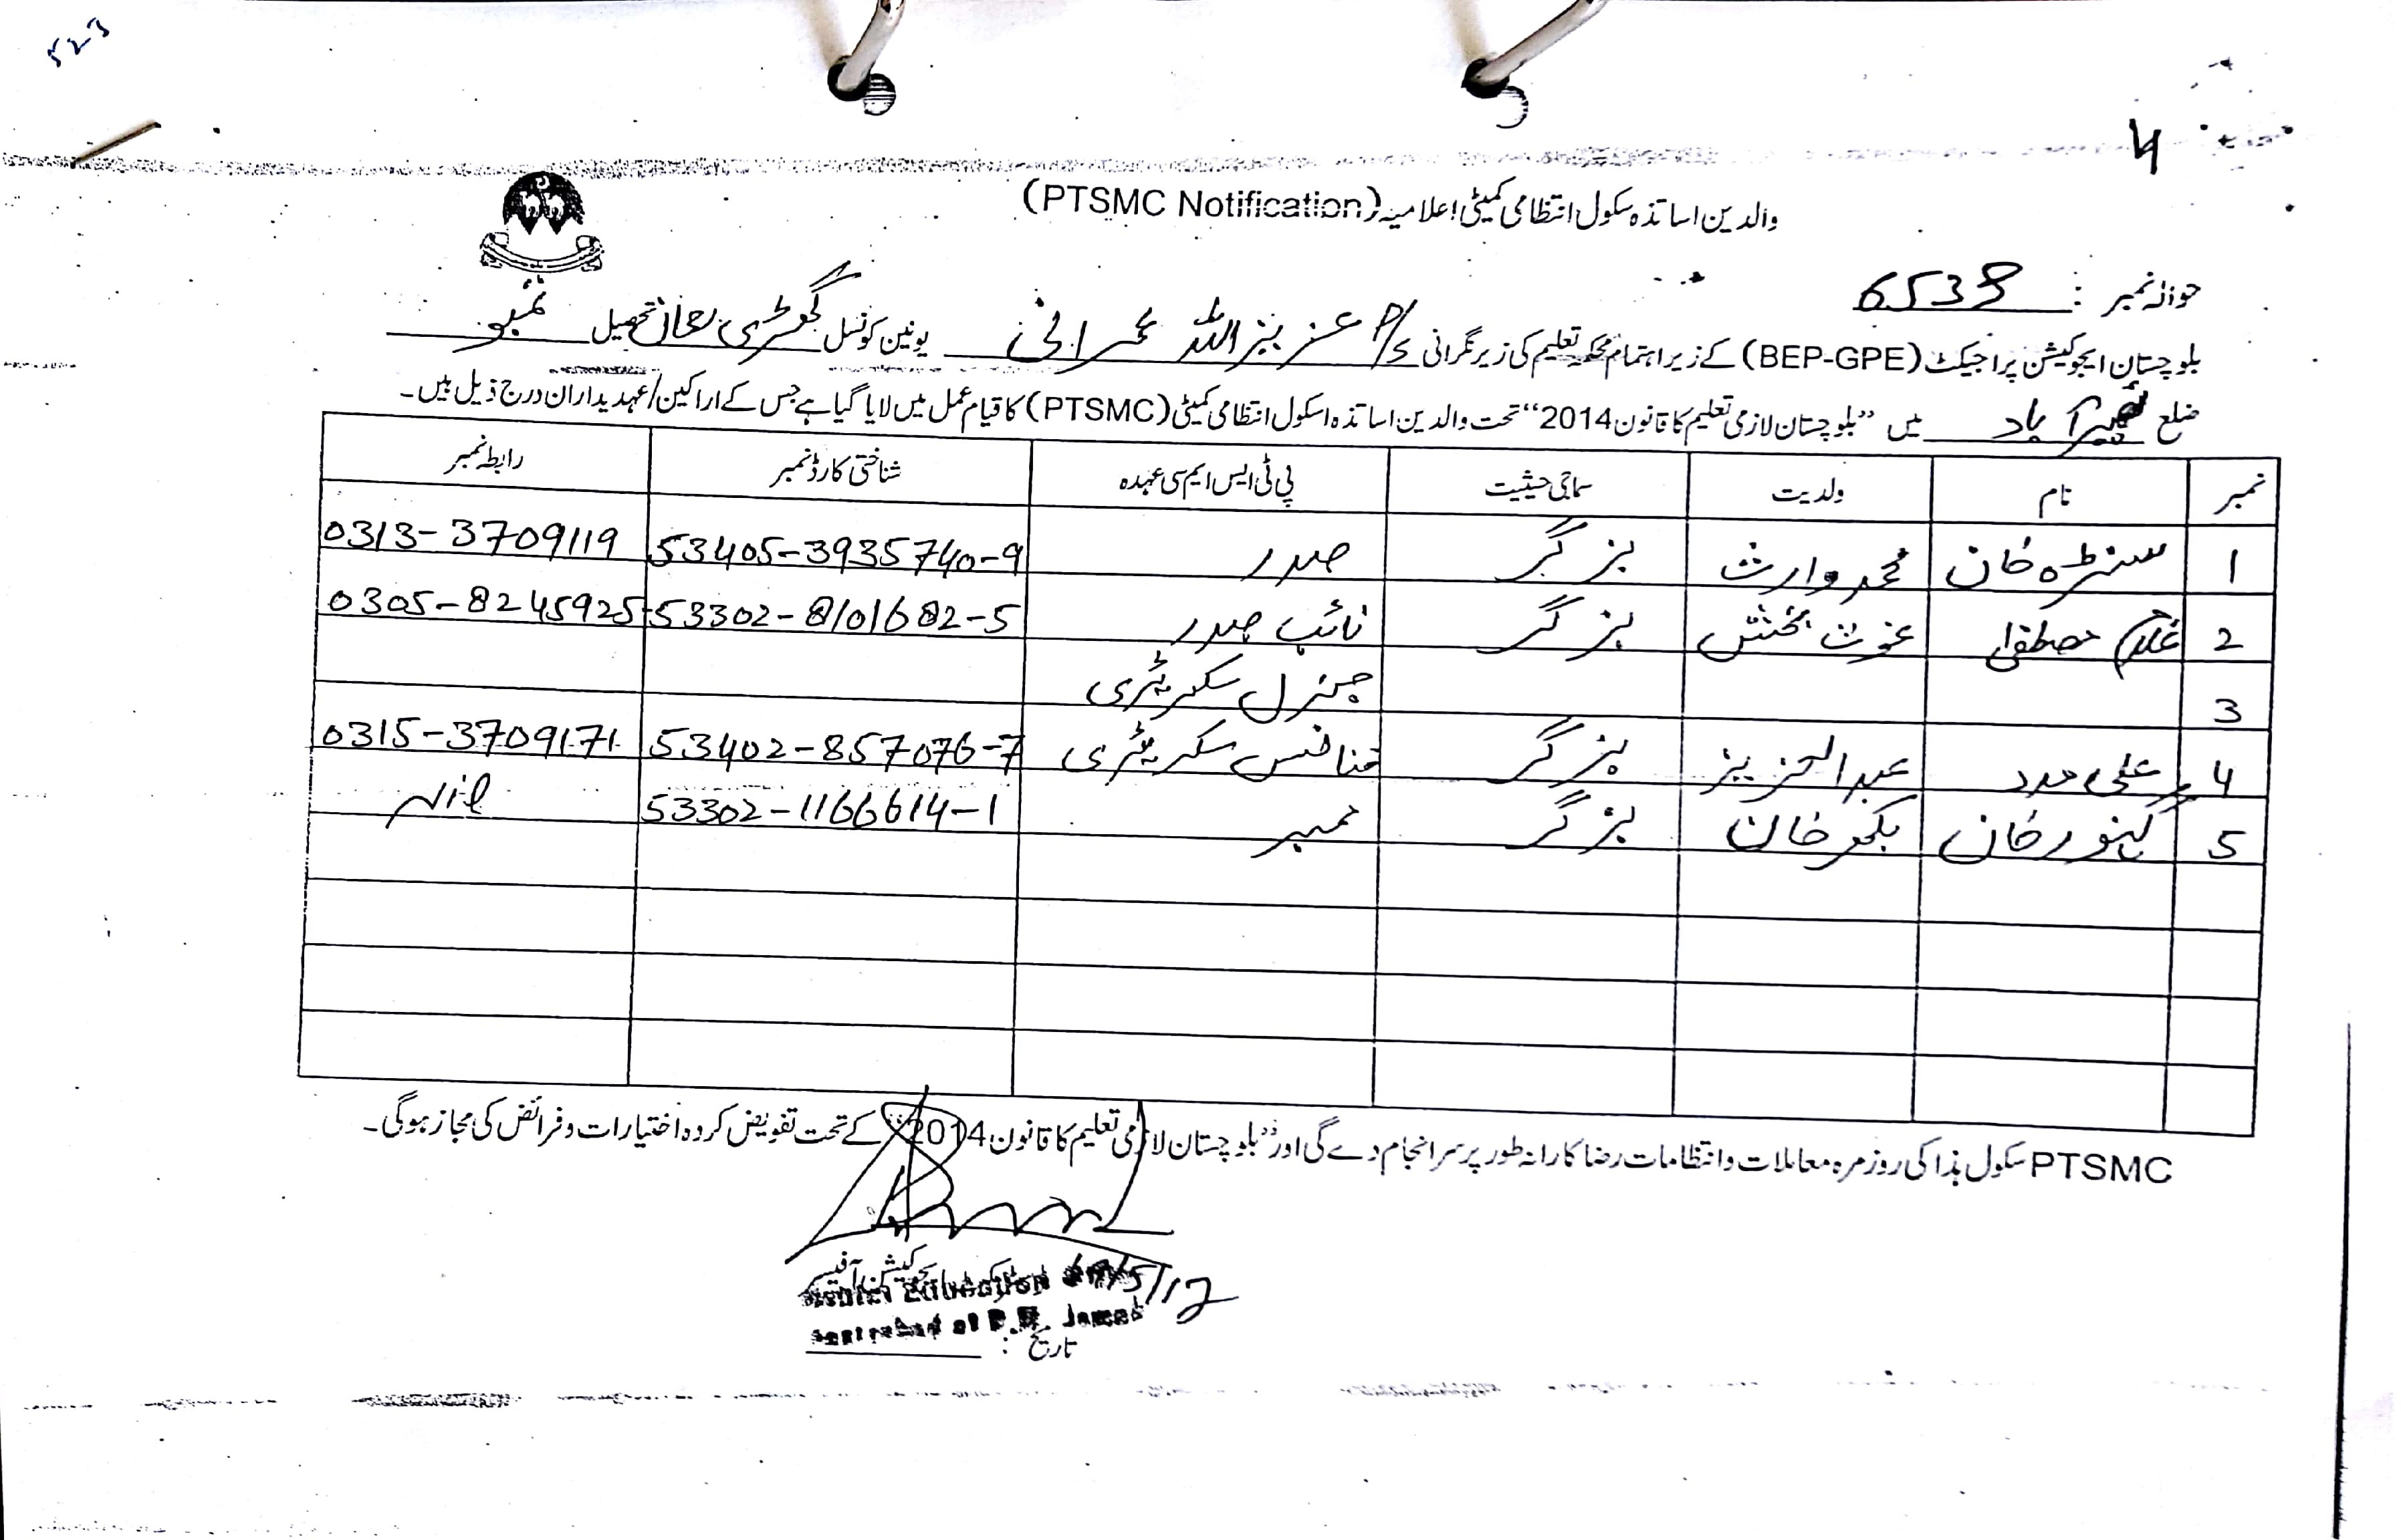 523
4
والدین اساتذہ سکول انتظامی کمیٹی اعلامیہ (PTSMC Notification)
حوالہ نمبر : 6538
بلوچستان ایجوکیشن پراجیکٹ (BEP-GPE) کے زیر اہتمام محکمہ تعلیم کی زیر نگرانی P/S عزیز اللہ عمرانی یونین کونسل تحصیل تمبو
ضلع نصیر آباد میں "بلوچستان لازمی تعلیم کا قانون 2014" تحت والدین اساتذہ اسکول انتظامی کمیٹی (PTSMC) کا قیام عمل میں لایا گیا ہے جس کے اراکین/عہدیداران درج ذیل ہیں۔
نمبر نام ولدیت سماجی حیثیت پی ٹی ایس ایم سی عہدہ شناختی کارڈ نمبر رابطہ نمبر
1 خان محمد وارث بزگر صدر 53405-3935740-9 0313-3709119
2 غلام مصطفیٰ غوث بخش بزگر نائب صدر 53302-8101682-5 0305-8245925
3 جنرل سکریٹری
4 علی مدد عبدالعزیز بزگر فنانس سکریٹری 53402-857076-7 0315-3709171
5 خان خان بزگر ممبر 53302-1166614-1 Nil
PTSMC سکول ہذا کی روزمرہ معاملات و انتظامات رضا کارانہ طور پر سرانجام دے گی اور "بلوچستان لازمی تعلیم کا قانون 2014" کے تحت تفویض کردہ اختیارات و فرائض کی مجاز ہوگی۔
تاریخ :